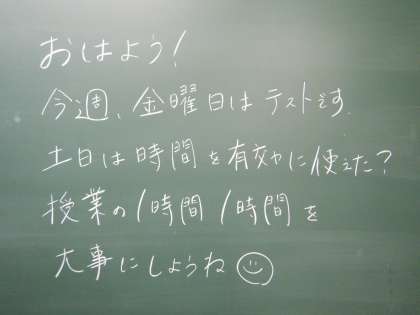 おはよう!
今週、金曜日はテストです.
土日は時間を有効に使えた?
授業の1時間1時間を
大事にしようね